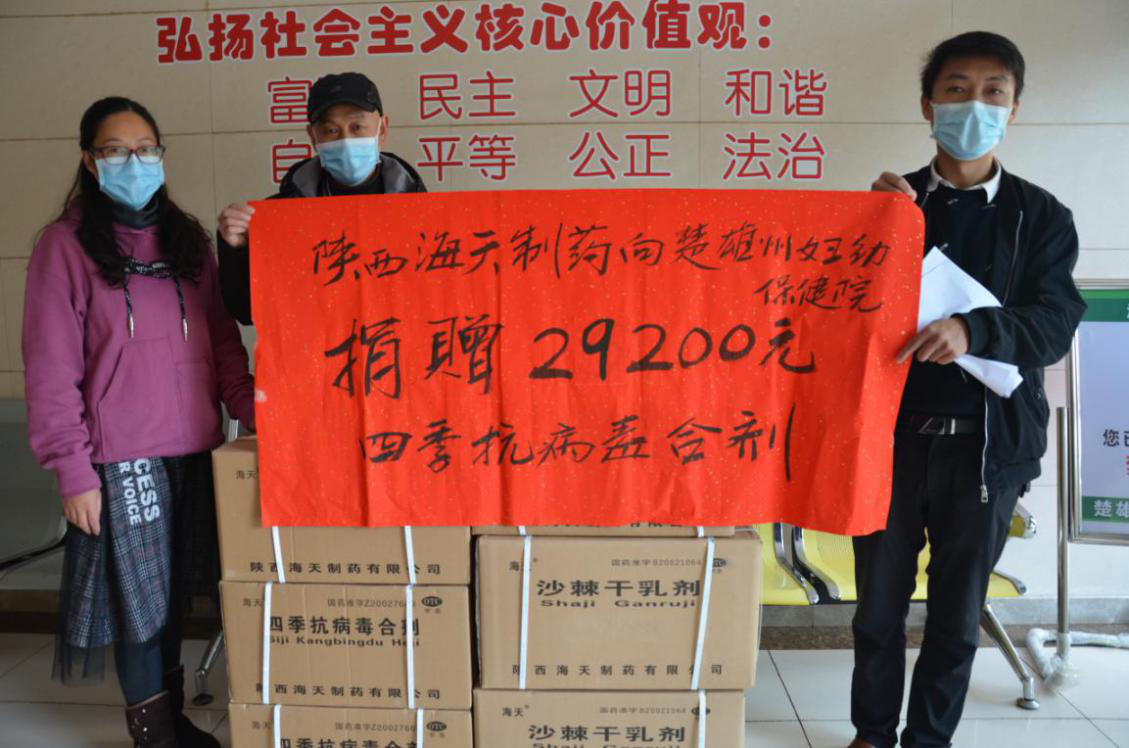 弘扬社会主义核心价值观：
富 民主 文明 和谐
自 平等 公正 法治
陕西海天制药向楚雄州妇幼
保健院
捐赠29200元
四季抗病毒合剂
海天
陕西海天制药有限公司
海天 国药准字Z20027660 OTC
四季抗病毒合剂
Siji Kangbingdu Heji
陕西海天制药有限公司
海天 国药准字Z2002760
四季抗病毒合剂
有限公
海天 国药准字B20021064
沙棘干乳剂
Shaji Ganruji
陕西海天制药有限公司
海天 国药准字B20021064
沙棘干乳剂
CESS
R VOICE
您已
楚雄